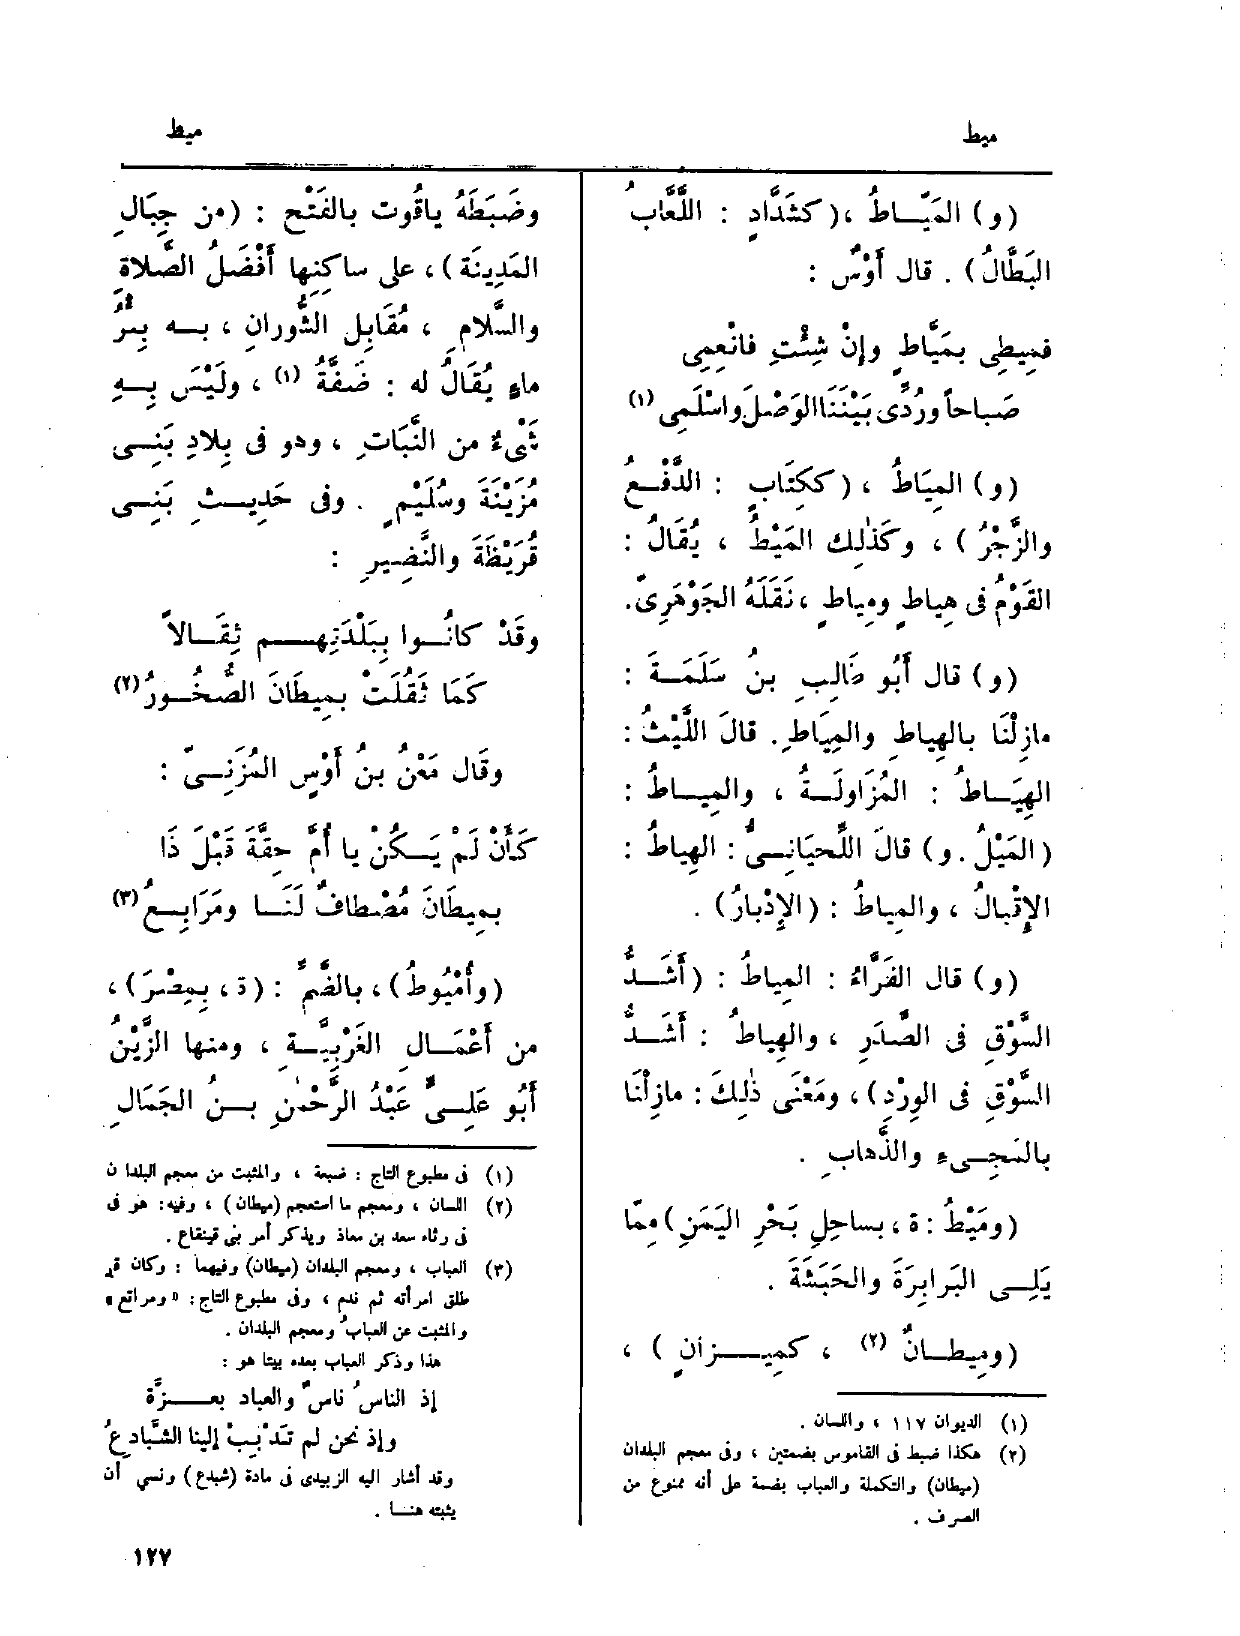 ميط
ميط
(و) المَيَّـاطُ ، (كشَدَّادٍ : اللَّعَّابُ
البَطَّالُ) . قال أَوْسٌ :
فمِيطِى بمَيَّاطٍ وإِنْ شِئْتِ فانْعِمِى
صَباحاً ورُدِّى بَيْنَنَا الوَصْلَ واسْلَمِى (١)
(و) المِيَاطُ ، (ككِتَابٍ : الدَّفْـعُ
والزَّجْرُ) ، وكَذٰلِك المَيْطُ ، يُقَالُ :
القَوْمُ فى هِياطٍ ومِياطٍ ، نَقَلَهُ الجَوْهَرِىّ .
(و) قال أَبُو طَالِبِ بنُ سَلَمَـةَ :
مازِلْنَا بالهِياطِ والمِيَاطِ . قالَ اللَّيْثُ :
الهِيَـاطُ : المُزَاوَلَـةُ ، والمِيـاطُ :
(المَيْلُ . و) قالَ اللِّحْيَانِـىُّ : الهِياطُ :
الإِقْبالُ ، والمِياطُ : (الإِدْبارُ) .
(و) قال الفَرَّاءُ : المِياطُ : (أَشَـدُّ
السَّوْقِ فى الصَّدَرِ ، والهِياطُ : أَشَـدُّ
السَّوْقِ فى الوِرْدِ) ، ومَعْنَى ذٰلِكَ : مازِلْنَا
بالمَجِىءِ والذَّهابِ .
(ومَيْطُ : ة ، بساحِلِ بَحْرِ اليَمَنِ) مِمّا
يَلِـى البَرابِرَةَ والحَبَشَةَ .
(ومِيطـانُ (٢) ، كمِيـزانٍ) ،
(١) الديوان ١١٧ ، واللسان .
(٢) هكذا ضبط فى القاموس بضمتين ، وفى معجم البلدان
(ميطان) والتكملة والعباب بضمة على أنه ممنوع من
الصرف .
وضَبَطَهُ ياقُوت بالفَتْح : (من جِبَالِ
المَدِينَة) ، على ساكِنِها أَفْضَلُ الصَّلاةِ
والسَّلامِ ، مُقَابِل الشُّورانِ ، بـه بِئْرُ
ماءٍ يُقَالُ له : ضَفَّةُ (١) ، ولَيْسَ بِـهِ
شَىْءٌ من النَّبَاتِ ، وهو فى بِلادِ بَنِـى
مُزَيْنَةَ وسُلَيْمٍ . وفى حَدِيـثِ بَنِـى
قُرَيْظَةَ والنَّضِيرِ :
وقَدْ كانُـوا بِبَلْدَتِهِـم ثِقَـالاً
كَمَا ثَقُلَتْ بمِيطَانَ الصُّخُـورُ (٢)
وقَال مَعْنُ بنُ أَوْسٍ المُزَنِـىّ :
كَأَنْ لَمْ يَـكُنْ يا أُمَّ حِقَّةَ قَبْلَ ذَا
بمِيطَانَ مُصْطافٌ لَنَـا ومَرَابِـعُ (٣)
(وأُمْيُوطُ) ، بالضَّمِّ : (ة ، بمِصْرَ) ،
من أَعْمَـالِ الغَرْبِيَّـةِ ، ومنها الزَّيْنُ
أَبُو عَلِـىٍّ عَبْدُ الرَّحْمٰنِ بـنُ الجَمَالِ
(١) فى مطبوع التاج : ضبعة ، والمثبت من معجم البلدان
(٢) اللسان ، ومعجم ما استعجم (ميطان) ، وفيه : هو فى
فى رثاء سعد بن معاذ ويذكر أمر بنى قينقاع .
(٣) العباب ، ومعجم البلدان (ميطان) وفيهما : وكان قد
طلق امرأته ثم ندم ، وفى مطبوع التاج : « ومراتع »
والمثبت عن العباب ومعجم البلدان .
هذا وذكر العباب بعده بيتا هو :
إذ الناسُ ناسٌ والعباد بعـزَّة
وإذ نحن لم تَدْبِبْ إلينا الشَّبادِعُ
وقد أشار اليه الزبيدى فى مادة (شبدع) ونسي أن
يثبته هنـا .
١٢٧